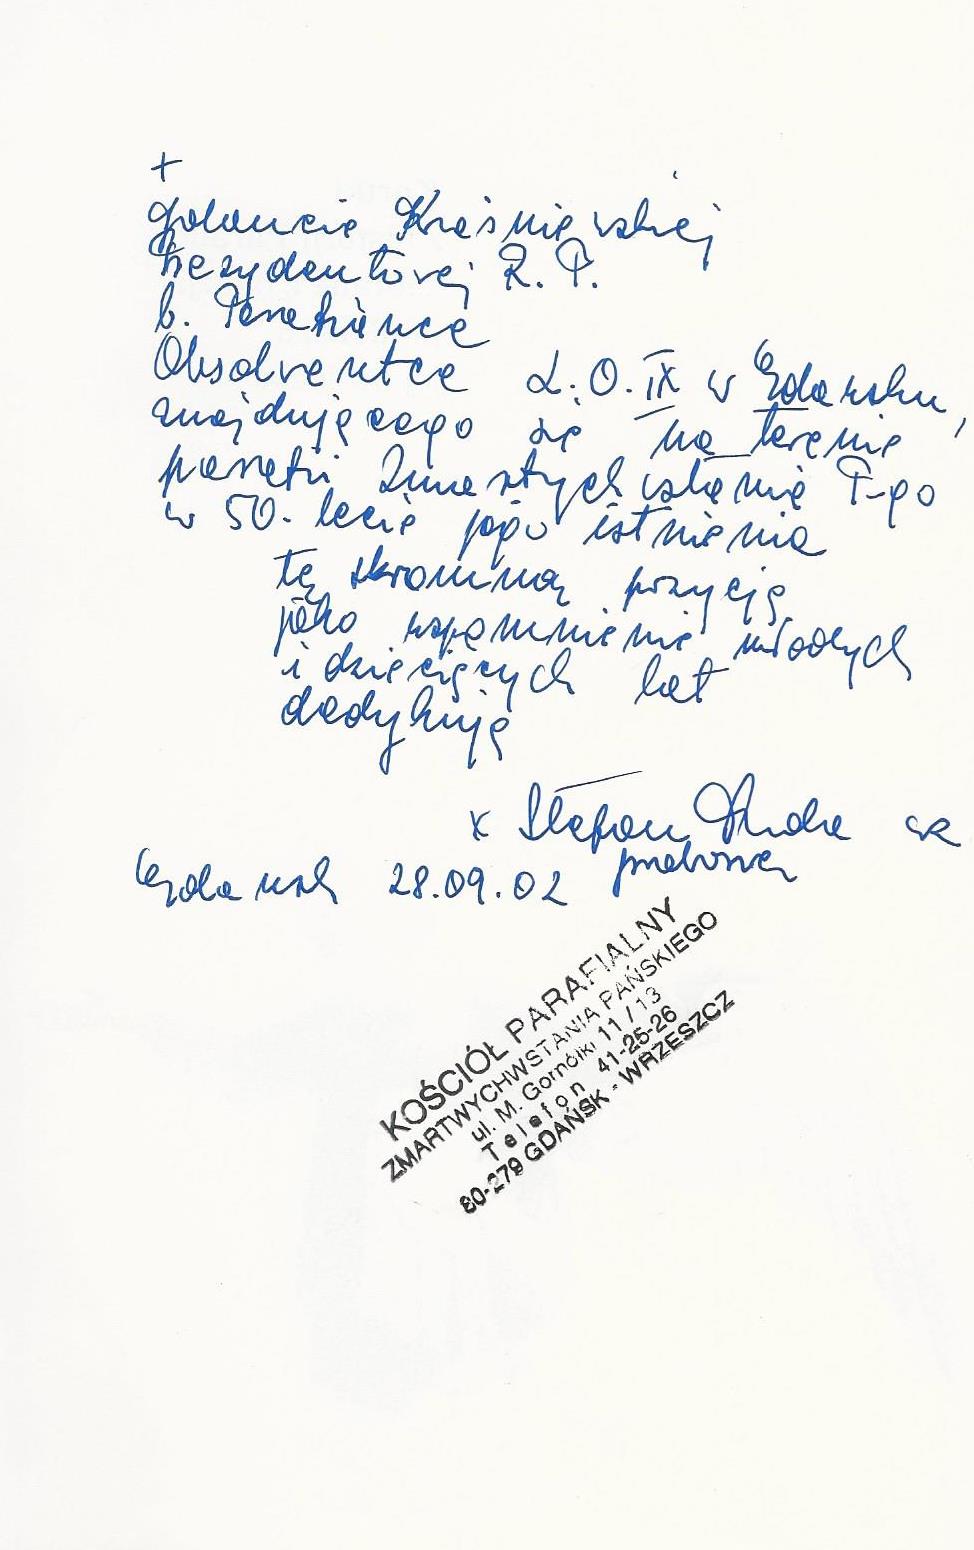 +
Jolancie Kwaśniewskiej
Prezydentowej R. P.
b. Parafiance
Absolwentce L.O. IX w Gdańsku,
znajdującego się na terenie
parafii Zmartwychwstania P-go
w 50-lecie jego istnienia
tę skromną pozycję
jako wspomnienie młodych
i dziecięcych lat
dedykuję
x Stefan
proboszcz
Gdańsk 28.09.02
KOŚCIÓŁ PARAFIALNY
ZMARTWYCHWSTANIA PAŃSKIEGO
ul. M. Gornółki 11/13
Telefon 41-25-26
80-279 GDAŃSK - WRZESZCZ